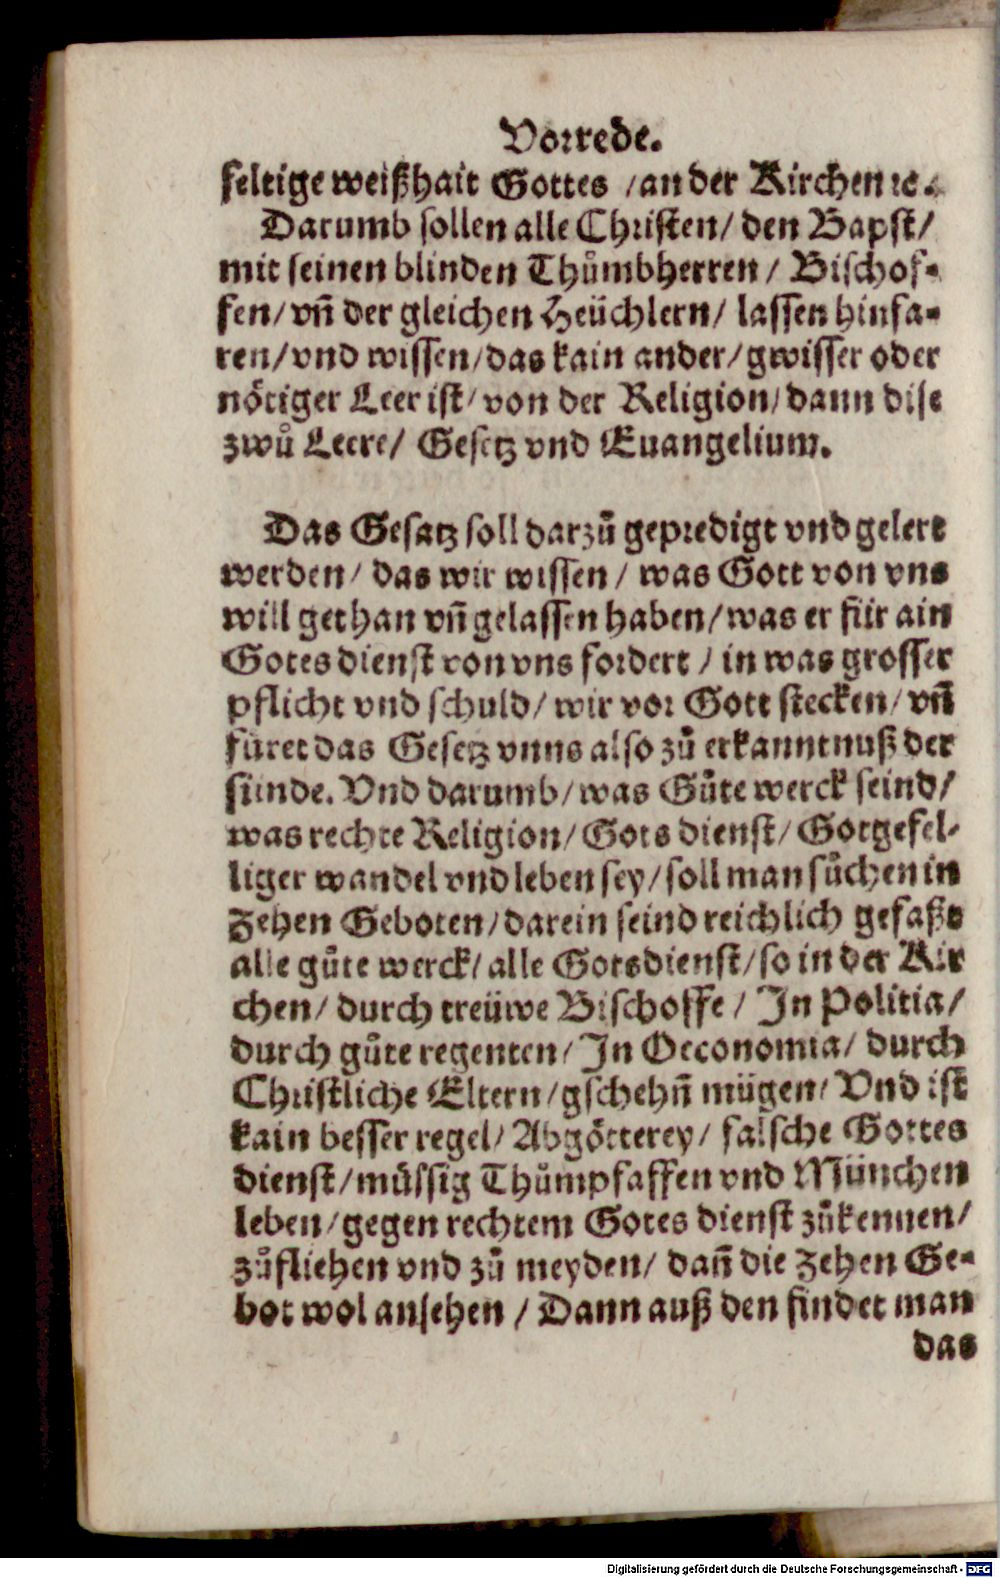 Vorrede.
feltige weißhait Gottes /an der Kirchen ꝛc.
Darumb sollen alle Christen/ den Bapst/
mit seinen blinden Thůmbherren/ Bischof-
fen/ vñ der gleichen Heüchlern/ lassen hinfa-
ren/vnd wissen/das kain ander/gwisser oder
nötiger Leer ist/ von der Religion/dann dise
zwů Leere/ Gesetz vnd Euangelium.
Das Gesatz soll darzů gepredigt vnd gelert
werden/ das wir wissen/ was Gott von vns
will gethan vñ gelassen haben/was er für ain
Gotes dienst von vns fordert / in was grosser
pflicht vnd schuld/ wir vor Gott stecken/ vñ
füret das Gesetz vnns also zů erkanntnuß der
sünde. Vnd darumb/was Gůte werck seind/
was rechte Religion/Gots dienst/ Gotgefel-
liger wandel vnd leben sey/soll man sůchen in
Zehen Geboten/darein seind reichlich gefaßt
alle gůte werck/ alle Gotsdienst/so in der Kir
chen/ durch treüwe Bischoffe/ In Politia/
durch gůte regenten/ In Oeconomia/ durch
Christliche Eltern/gschehñ mügen/ Vnd ist
kain besser regel/ Abgötterey/ falsche Gottes
dienst/müssig Thůmpfaffen vnd München
leben/gegen rechtem Gotes dienst zůkennen/
zůfliehen vnd zů meyden/ dañ die Zehen Ge-
bot wol ansehen / Dann auß den findet man
das
Digitalisierung gefördert durch die Deutsche Forschungsgemeinschaft - DFG